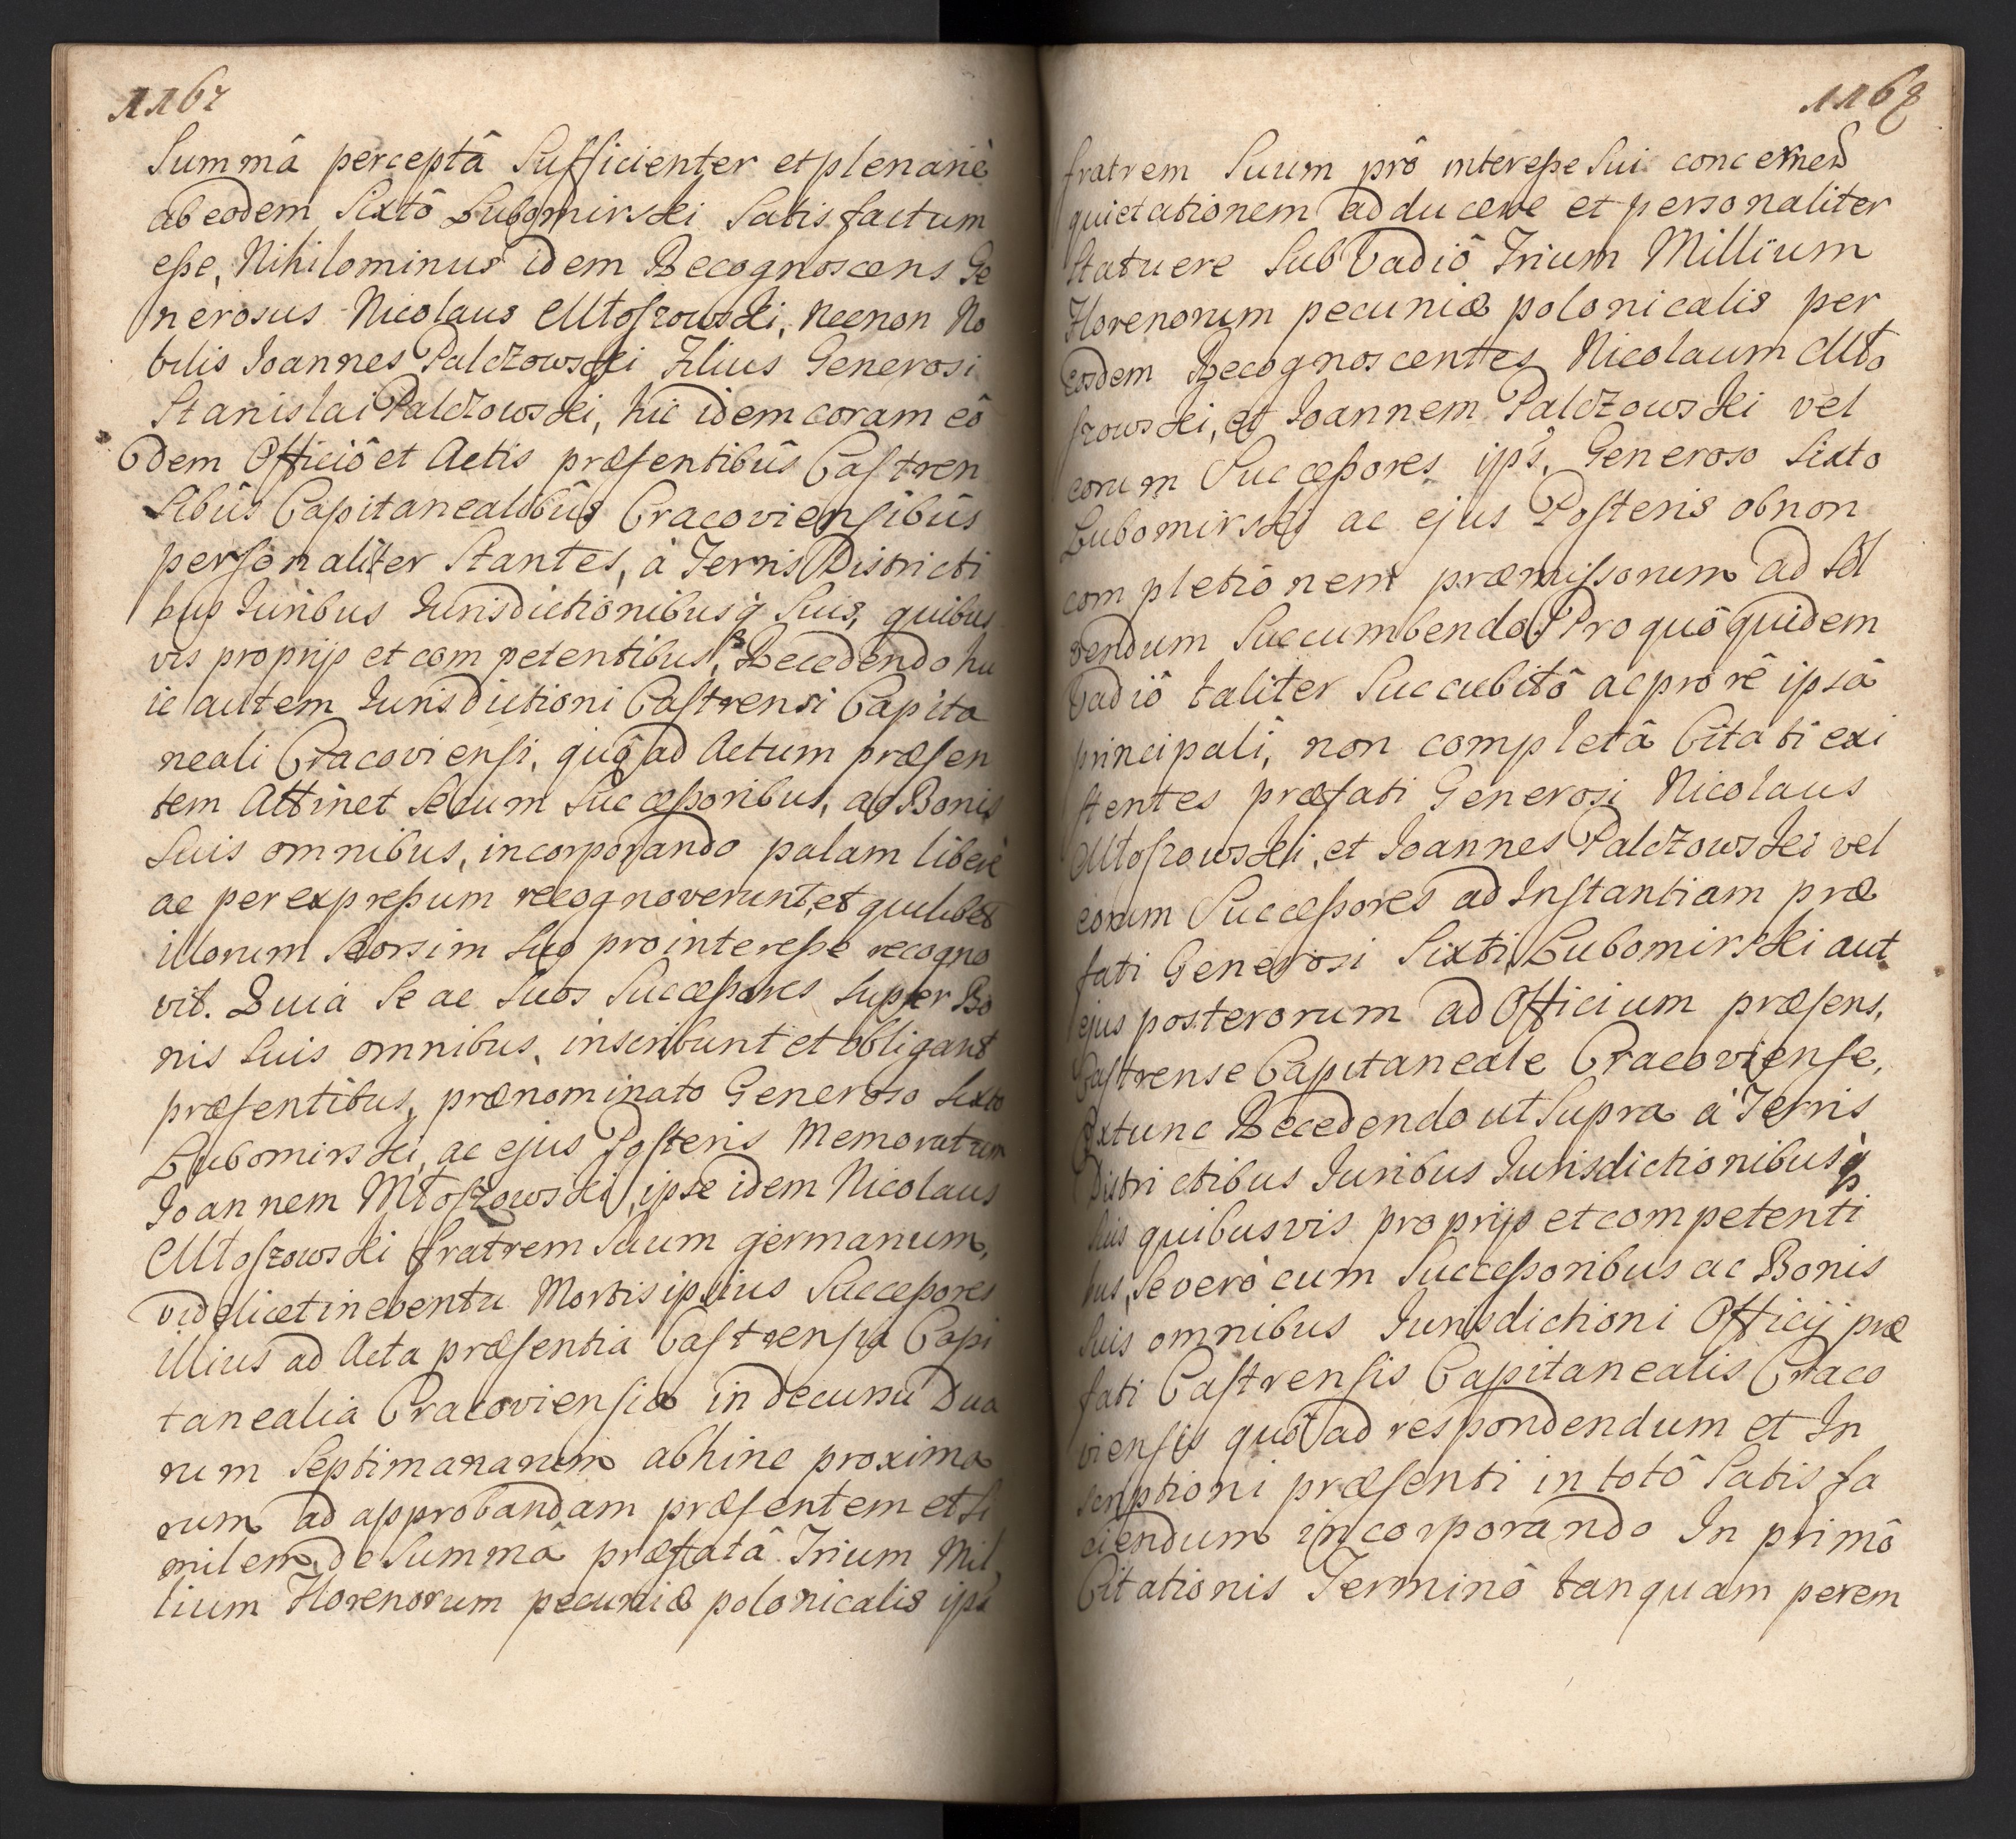 1167
Summâ perceptâ Sufficienter et plenariè
ab eodem Sixtô Lubomirski Satis factum
eſse, Nihilominus idem Recognoscens Ge
nerosus Nicolaus Młoſzowski, Necnon No
bilis Ioannes Palczowski Filius Generosi
Stanislai Palczowski, hic idem coram eô
dem Officiô et Actis præſentibûs Caſtren
ſibûs Capitanealibûs Cracovienſibûs
perſonaliter Stantes, à Terris Districti
bus Iuribus Iurisdictionibusq̀ Suis, quibus
vis proprijs et competentibus, Recedendo hu
ic autem Iurisdictioni Caſtrensi Capita
neali Cracovienſi, quô ad Actum præſen
tem Attinet Se cum Succeſsoribus, ac Bonis
Suis omnibus, incorporando palam liberè
ac per expreſsum recognoverunt, et quilibet
illorum Seorsim Suo pro intereſse recogno
vit. Quia Se ac Suos Succeſsores Super Bo
nis Suis omnibus, inscribunt et obligant
præſentibus, prænominato Generoso Sixto
Lubomirski, ac ejus Poſteris Memoratum
Joannem Młoſzowski, ipse idem Nicolaus
Młoſzowski fratrem Suum germanum,
videlicet in eventu Mortis ipsius Succeſsores
illius ad Acta præſentia Caſtrenſia Capi
tanealia Cracovienſia in decursu Dua
rum Septimanarum abhinc proxima
rum ad approbandam præſentem et Si
milem de Summâ præfatâ Trium Mil
lium Florenorum pecuniæ polonicalis ips
1168
fratrem Suum prô intereſse Sui concernen
quietationem adducere et personaliter
Statuere Sub Vadiô Trium Millium
Florenorum pecuniæ polonicalis per
eosdem Recognoscentes Nicolaum Mło
ſzowski, et Ioannem Palczowski vel
eorum Succeſsores ips, Generoso Sixto
Lubomirski ac ejus Poſteris ob non
completionem præmiſsorum ad Sol
vendum Succumbendo Pro quô quidem
Vadiô taliter Succubitô ac pro rê ipsâ
principali, non completâ Citati exi
ſtentes præfati Generosi Nicolaus
Młoſzowski, et Ioannes Palczowski vel
eorum Succeſsores ad Inſtantiam præ
fati Generosi Sixti Lubomirski aut
ejus posterorum ad Officium præſens,
Caſtrense Capitaneale Cracovienſe,
Extunc Recedendo ut Supra à Terris
Districtibus Iuribus Iurisdictionibusq̀
Suis quibusvis proprijs et competenti
bus, Se verò cum Succeſsoribus ac Bonis
Suis omnibus Iurisdictioni Officij præ
fati Caſtrenſis Capitanealis Craco
vienſis quô ad respondendum et In
scriptioni præſenti in totô Satis fa
ciendum incorporando In primô
Citationis Terminô tanquam perem